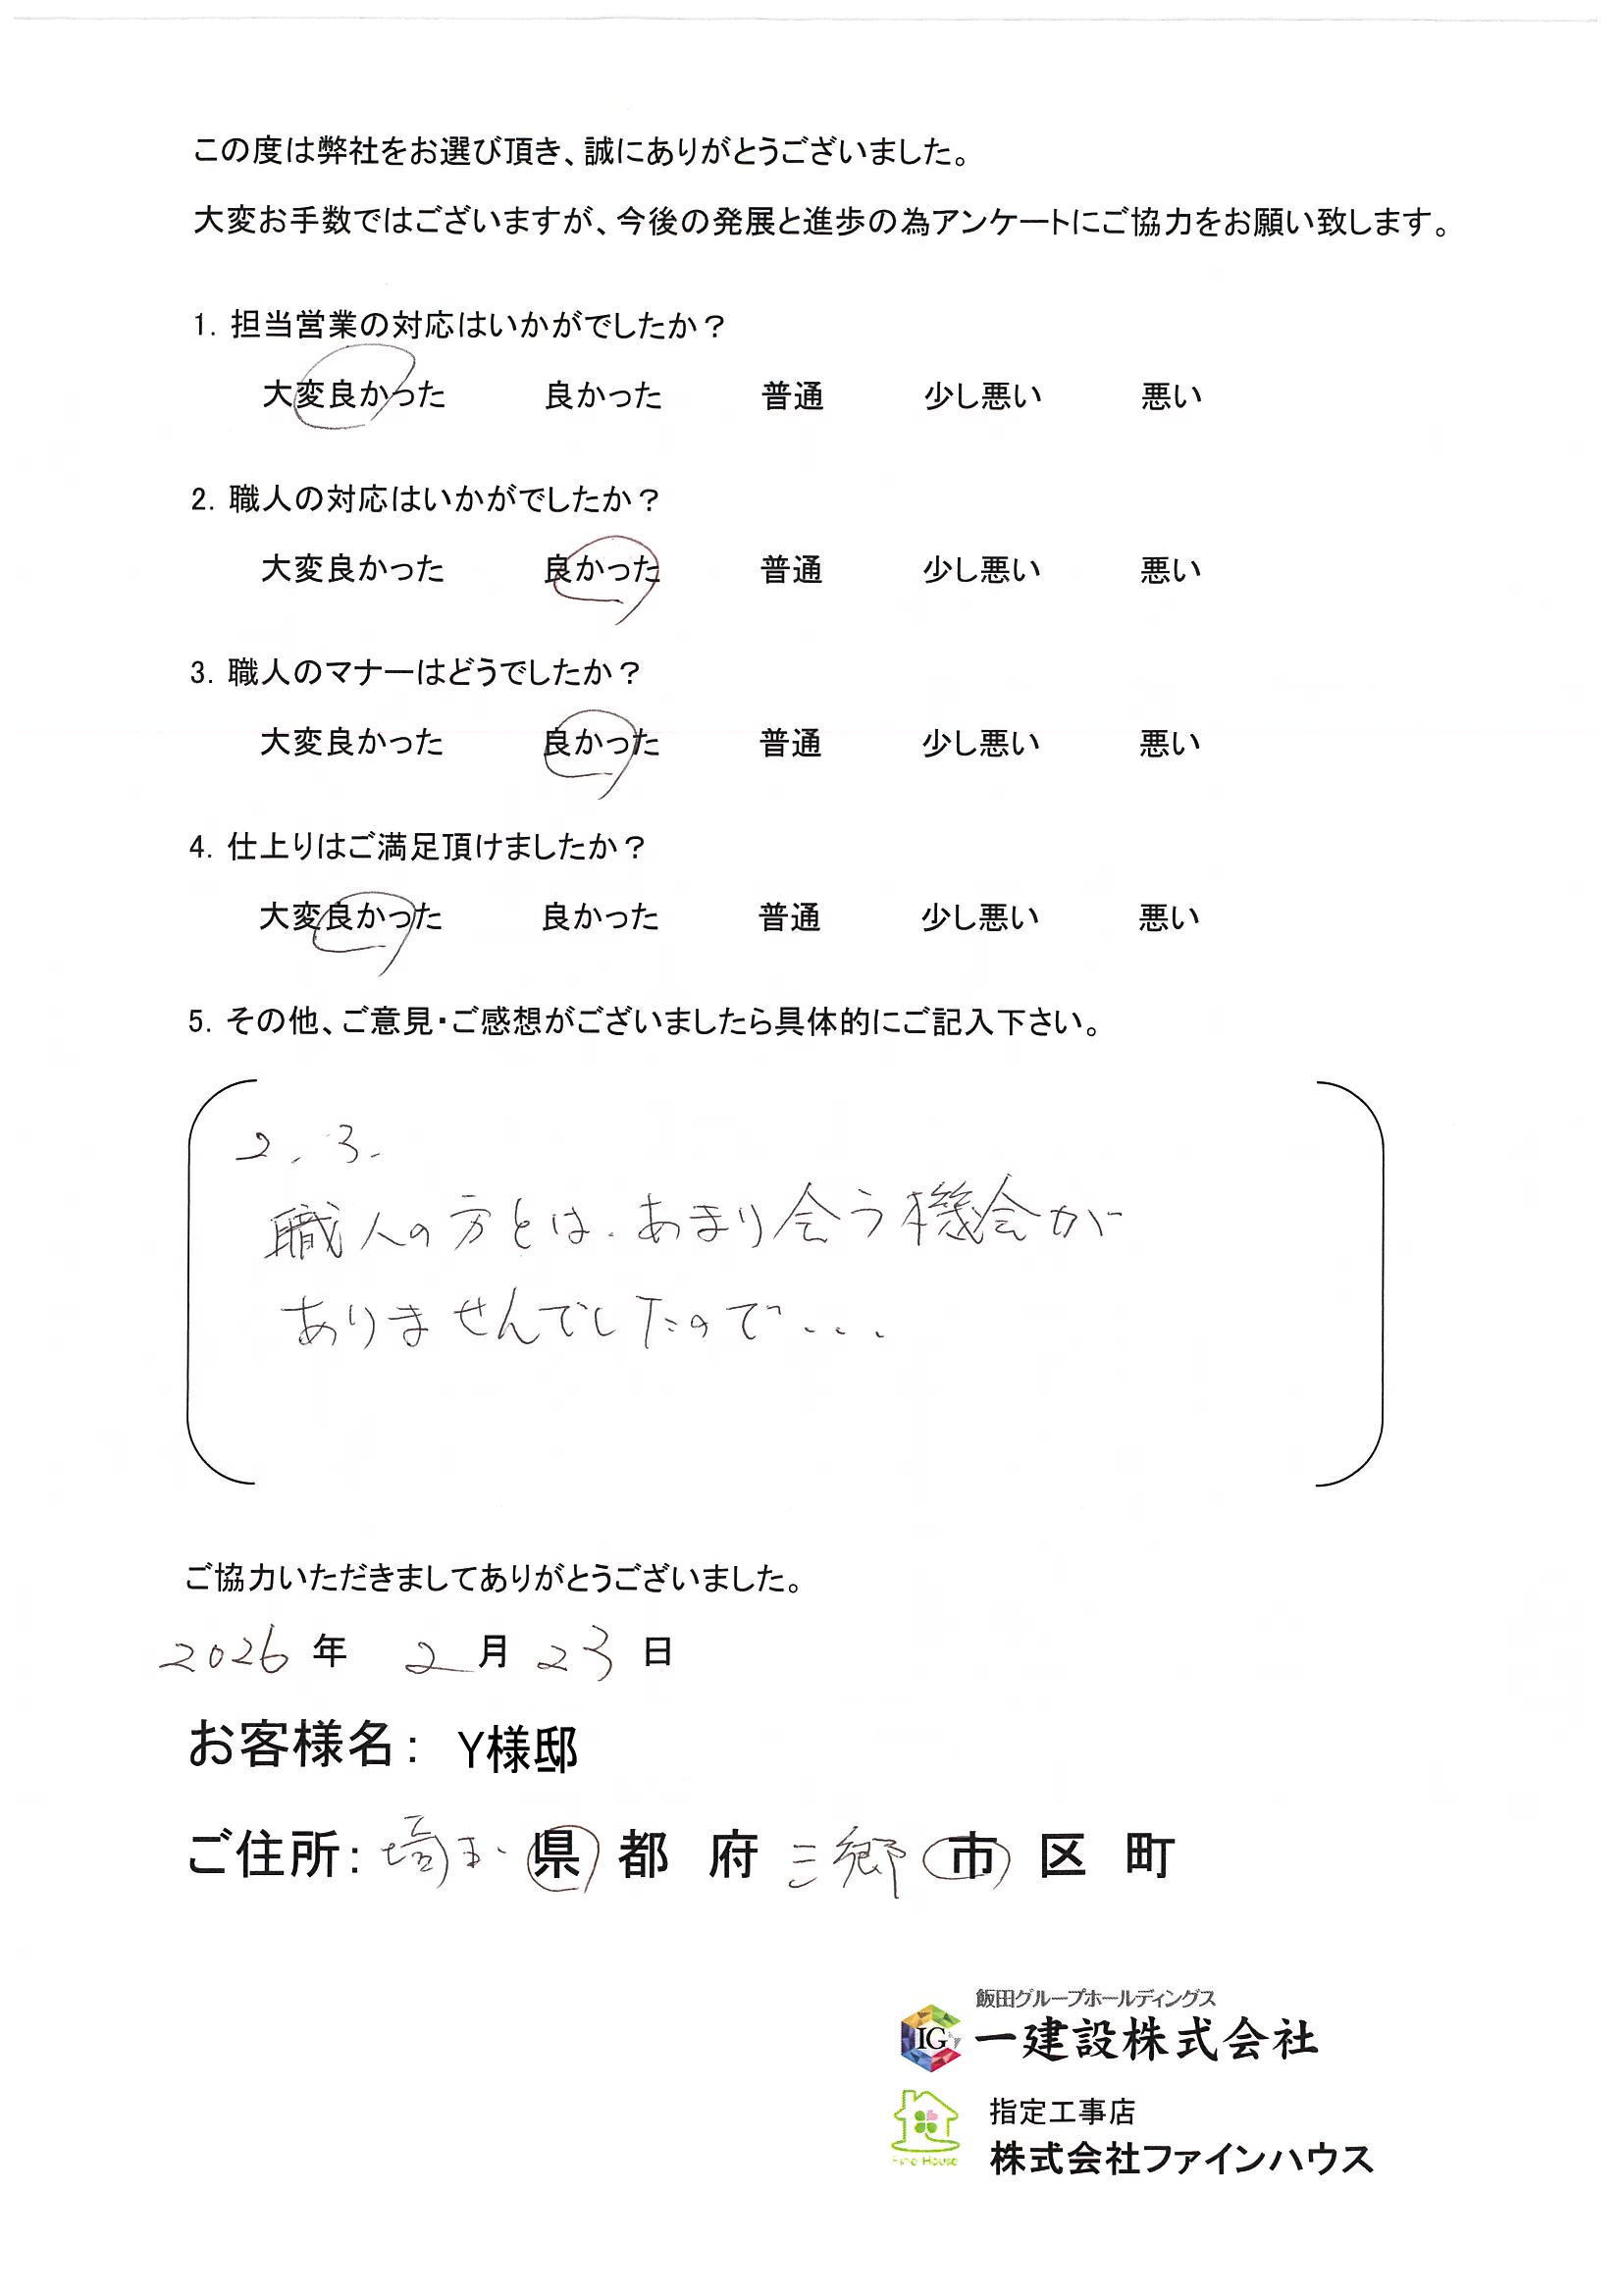 この度は弊社をお選び頂き、誠にありがとうございました。
大変お手数ではございますが、今後の発展と進歩の為アンケートにご協力をお願い致します。
1. 担当営業の対応はいかがでしたか？
大変良かった 良かった 普通 少し悪い 悪い
2. 職人の対応はいかがでしたか？
大変良かった 良かった 普通 少し悪い 悪い
3. 職人のマナーはどうでしたか？
大変良かった 良かった 普通 少し悪い 悪い
4. 仕上りはご満足頂けましたか？
大変良かった 良かった 普通 少し悪い 悪い
5. その他、ご意見・ご感想がございましたら具体的にご記入下さい。
2. 3.
職人の方とは、あまり会う機会が
ありませんでしたので...
ご協力いただきましてありがとうございました。
2026 年 2 月 23 日
お客様名： Y様邸
ご住所： 埼玉 県 都 府 三郷 市 区 町
飯田グループホールディングス
IG 一建設株式会社
指定工事店
Fine House 株式会社ファインハウス